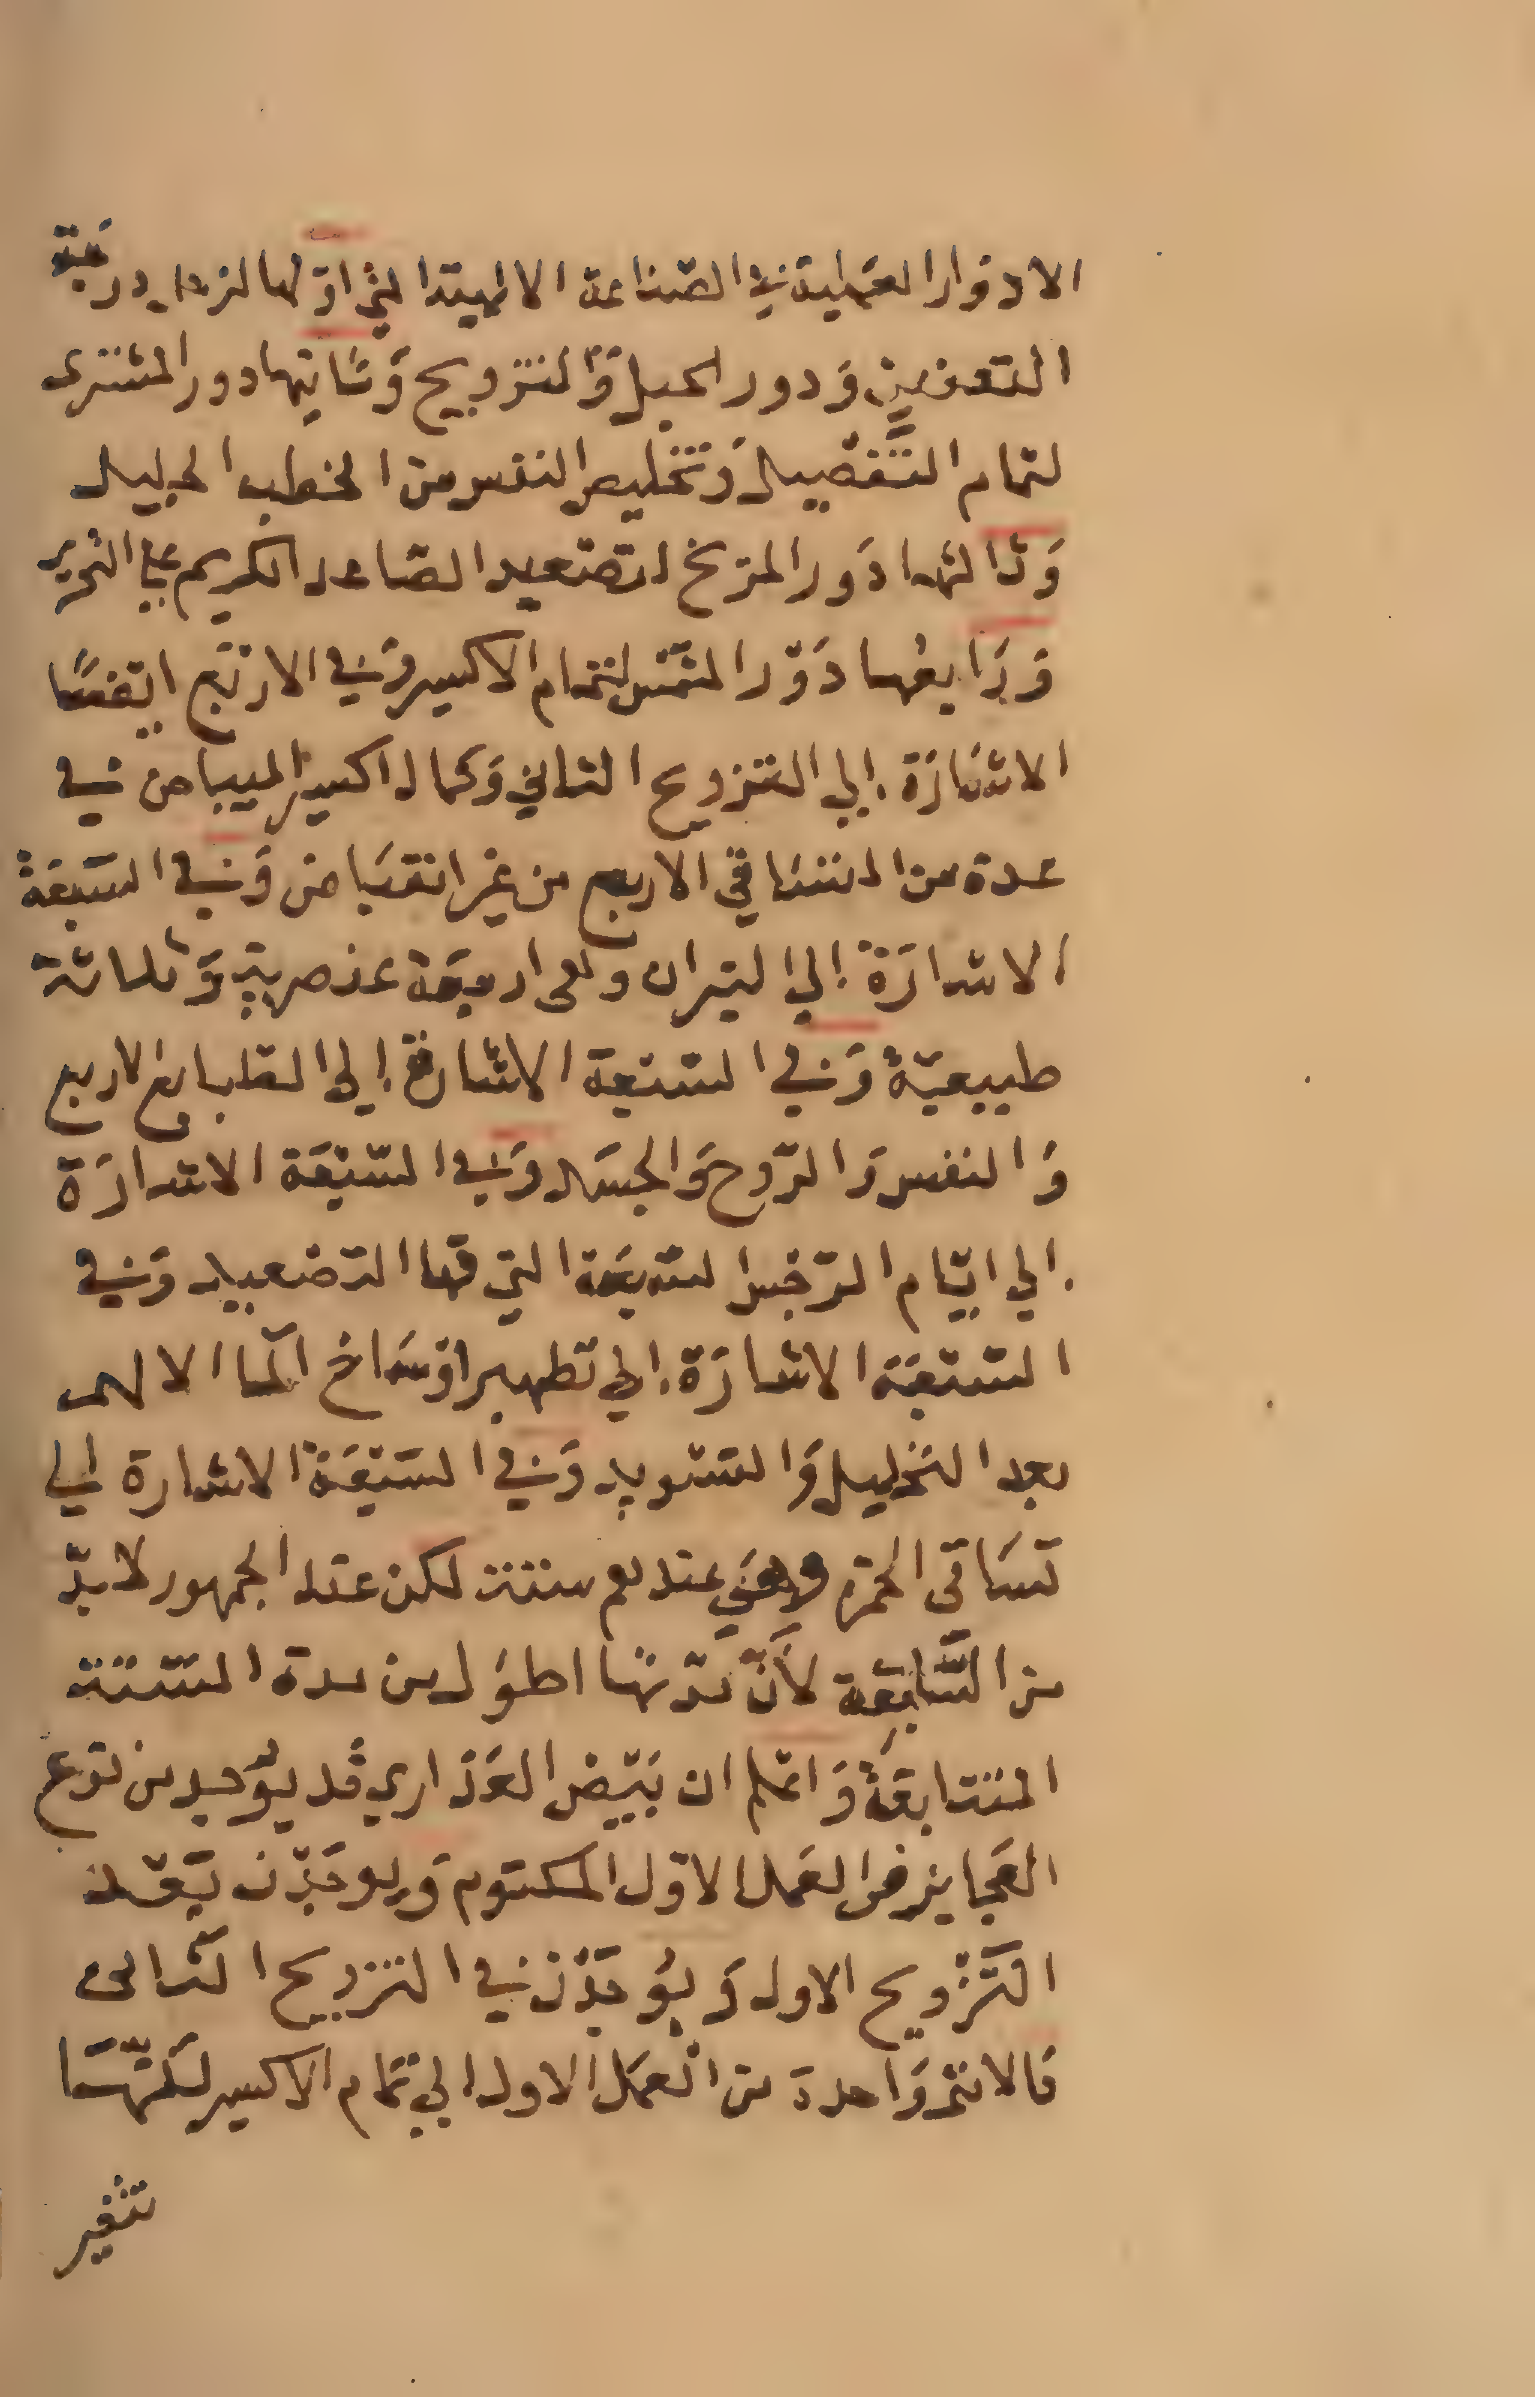 الادوار العملية في الصناعة الالهية التي اولها لزحل ورتبته
التعفين ودور الحبل والتزويج وثانيها دور المشترى
لتمام التفصيل وتخليص النفس من الخطب الجليل
وثالثها دور المريخ لتصعيد الصاعد الكريم على التحرير
ورابعها دور الشمس لتمام الاكسير وفي الاربع ايضا
الاشارة الي التزويج الثاني وكمال اكسير البياض في
عدة من التساقي الاربع من غير انقباض وفي السبعة
الاشارة الي النيران وهي اربعة عنصرية وثلاثة
طبيعية وفي السبعة الاشارة الي الطبايع الاربع
والنفس والروح والجسد وفي السبعة الاشارة
الي ايام الرخس السبعة التي قها التصعيد وفي
السبعة الاشارة الي تطهير اوساخ الما الالهى
بعد التحليل والتسويد وفي السبعة الاشارة الي
تساقى الحمرة وهي عندهم ستت لكن عند الجمهور لا بد
من السابعة لان مدتها اطول من مدة الستة
المتتابعة واعلم ان بيض العذاري قد يوجد من نوع
العجايز في العمل الاول المكتوم ويوجدن بعد
التزويح الاول ويوجدن في التزويح الثانى
فالانثى واحدة من العمل الاول الي تمام الاكسير لكنها
تتغير